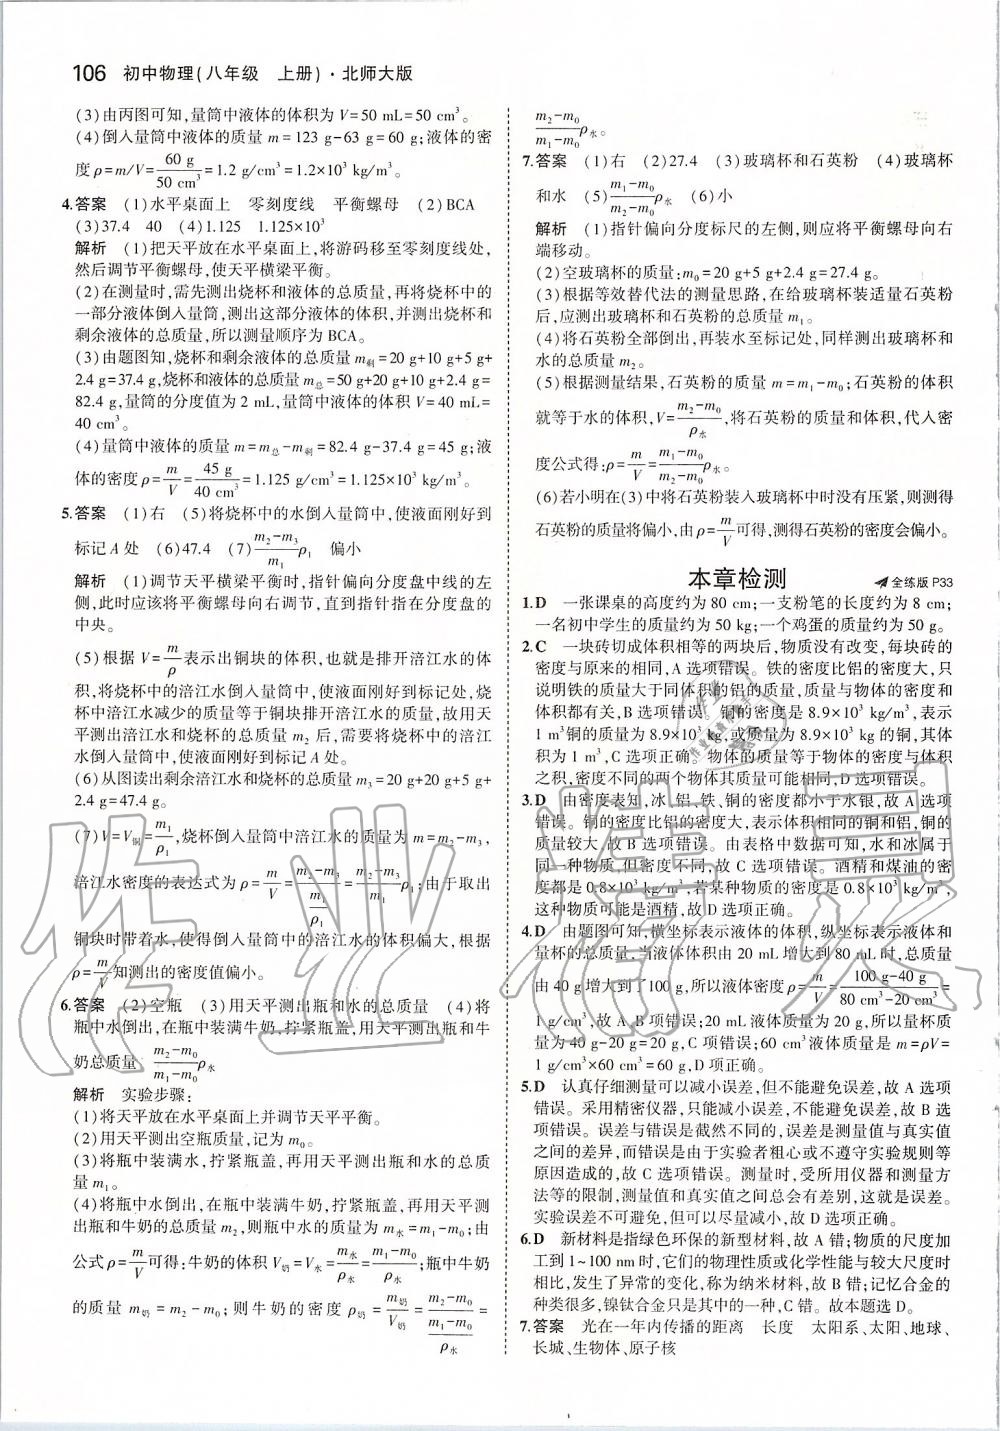 106 初中物理(八年级 上册)·北师大版
(3)由丙图可知,量筒中液体的体积为V=50 mL=50 cm³。
(4)倒入量筒中液体的质量 m=123 g-63 g=60 g;液体的密
度ρ=m/V=60 g/50 cm³=1.2 g/cm³=1.2×10³ kg/m³。
4.答案 (1)水平桌面上 零刻度线 平衡螺母 (2)BCA
(3)37.4 40 (4)1.125 1.125×10³
解析 (1)把天平放在水平桌面上,将游码移至零刻度线处,
然后调节平衡螺母,使天平横梁平衡。
(2)在测量时,需先测出烧杯和液体的总质量,再将烧杯中的
一部分液体倒入量筒,测出这部分液体的体积,并测出烧杯和
剩余液体的总质量,所以测量顺序为BCA。
(3)由题图知,烧杯和剩余液体的总质量m剩=20 g+10 g+5 g+
2.4 g=37.4 g,烧杯和液体的总质量m总=50 g+20 g+10 g+2.4 g=
82.4 g,量筒的分度值为2 mL,量筒中液体的体积V=40 mL=
40 cm³。
(4)量筒中液体的质量 m=m总-m剩=82.4 g-37.4 g=45 g;液
体的密度ρ=m/V=45 g/40 cm³=1.125 g/cm³=1.125×10³ kg/m³。
5.答案 (1)右 (5)将烧杯中的水倒入量筒中,使液面刚好到
标记A处 (6)47.4 (7)(m₂-m₃)/m₁ρ₁ 偏小
解析 (1)调节天平横梁平衡时,指针偏向分度盘中线的左
侧,此时应该将平衡螺母向右调节,直到指针指在分度盘的
中央。
(5)根据V=m/ρ表示出铜块的体积,也就是排开涪江水的体
积,将烧杯中的涪江水倒入量筒中,使液面刚好到标记处,烧
杯中涪江水减少的质量等于铜块排开涪江水的质量,故用天
平测出涪江水和烧杯的总质量m₂后,需要将烧杯中的涪江
水倒入量筒中,使液面刚好到标记A处。
(6)从图读出剩余涪江水和烧杯的总质量m₃=20 g+20 g+5 g+
2.4 g=47.4 g。
(7)V=V铜=m₁/ρ₁,烧杯倒入量筒中涪江水的质量为m=m₂-m₃,
涪江水密度的表达式为ρ=m/V=(m₂-m₃)/(m₁/ρ₁)=(m₂-m₃)/m₁ρ₁;由于取出
铜块时带着水,使得倒入量筒中的涪江水的体积偏大,根据
ρ=m/V知测出的密度值偏小。
6.答案 (2)空瓶 (3)用天平测出瓶和水的总质量 (4)将
瓶中水倒出,在瓶中装满牛奶,拧紧瓶盖,用天平测出瓶和牛
奶总质量 (m₂-m₀)/(m₁-m₀)ρ水
解析 实验步骤:
(1)将天平放在水平桌面上并调节天平平衡。
(2)用天平测出空瓶质量,记为m₀。
(3)将瓶中装满水,拧紧瓶盖,再用天平测出瓶和水的总质
量m₁。
(4)将瓶中水倒出,在瓶中装满牛奶,拧紧瓶盖,再用天平测
出瓶和牛奶的总质量m₂,则瓶中水的质量为m水=m₁-m₀;由
公式ρ=m/V可得:牛奶的体积V奶=V水=m水/ρ水=(m₁-m₀)/ρ水;瓶中牛奶
的质量m奶=m₂-m₀;则牛奶的密度ρ奶=m奶/V奶=(m₂-m₀)/((m₁-m₀)/ρ水)=
(m₂-m₀)/(m₁-m₀)ρ水。
7.答案 (1)右 (2)27.4 (3)玻璃杯和石英粉 (4)玻璃杯
和水 (5)(m₁-m₀)/(m₂-m₀)ρ水 (6)小
解析 (1)指针偏向分度标尺的左侧,则应将平衡螺母向右
端移动。
(2)空玻璃杯的质量:m₀=20 g+5 g+2.4 g=27.4 g。
(3)根据等效替代法的测量思路,在给玻璃杯装适量石英粉
后,应测出玻璃杯和石英粉的总质量m₁。
(4)将石英粉全部倒出,再装水至标记处,同样测出玻璃杯和
水的总质量m₂。
(5)根据测量结果,石英粉的质量m=m₁-m₀;石英粉的体积
就等于水的体积,V=(m₂-m₀)/ρ水,将石英粉的质量和体积,代入密
度公式得:ρ=m/V=(m₁-m₀)/(m₂-m₀)ρ水。
(6)若小明在(3)中将石英粉装入玻璃杯中时没有压紧,则测得
石英粉的质量将偏小,由ρ=m/V可得,测得石英粉的密度会偏小。
本章检测 全练版P33
1.D 一张课桌的高度约为80 cm;一支粉笔的长度约为8 cm;
一名初中学生的质量约为50 kg;一个鸡蛋的质量约为50 g。
2.C 一块砖切成体积相等的两块后,物质没有改变,每块砖的
密度与原来的相同,A选项错误。铁的密度比铝的密度大,只
说明铁的质量大于同体积的铝的质量,质量与物体的密度和
体积都有关,B选项错误。铜的密度是8.9×10³ kg/m³,表示
1 m³铜的质量为8.9×10³ kg,或质量为8.9×10³ kg的铜,其体
积为1 m³,C选项正确。物体的质量等于物体的密度与体积
之积,密度不同的两个物体其质量可能相同,D选项错误。
3.D 由密度表知,冰、铝、铁、铜的密度都小于水银,故A选项
错误。铜的密度比铝的密度大,表示体积相同的铜和铝,铜的
质量较大,故B选项错误。由表格中数据可知,水和冰属于
同一种物质,但密度不同,故C选项错误。酒精和煤油的密
度都是0.8×10³ kg/m³,若某种物质的密度是0.8×10³ kg/m³,
这种物质可能是酒精,故D选项正确。
4.D 由题图可知,横坐标表示液体的体积,纵坐标表示液体和
量杯的总质量,当液体体积由20 mL增大到80 mL时,总质量
由40 g增大到了100 g,所以液体密度ρ=m/V=(100 g-40 g)/(80 cm³-20 cm³)=
1 g/cm³,故A、B项错误;20 mL液体质量为20 g,所以量杯质
量为40 g-20 g=20 g,C项错误;60 cm³液体质量m=ρV=
1 g/cm³×60 cm³=60 g,D项正确。
5.D 认真仔细测量可以减小误差,但不能避免误差,故A选项
错误。采用精密仪器,只能减小误差,不能避免误差,故B选
项错误。误差与错误是截然不同的,误差是测量值与真实值
之间的差异,而错误是由于实验者粗心或不遵守实验规则等
原因造成的,故C选项错误。测量时,受所用仪器和测量方
法等的限制,测量值和真实值之间总会有差别,这就是误差。
实验误差不可避免,只能尽量减小,故D选项正确。
6.D 新材料是指绿色环保的新型材料,故A错;物质的尺度加
工到1~100 nm时,它们的物理性质或化学性能与较大尺度时
相比,发生了异常的变化,称为纳米材料,故B错;记忆合金的
种类很多,镍钛合金只是其中的一种,C错。故本题选D。
7.答案 光在一年内传播的距离 长度 太阳系、太阳、地球、
长城、生物体、原子核
作业精灵